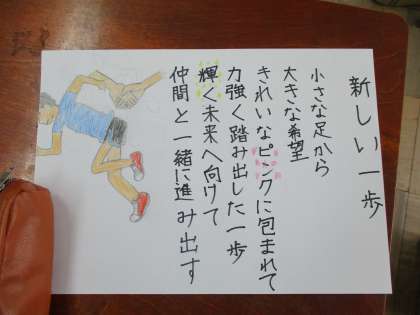 新しい一歩
小さな足から
大きな希望
きれいなピンクに包まれて
力強く踏み出した一歩
輝く未来へ向けて
仲間と一緒に進み出す